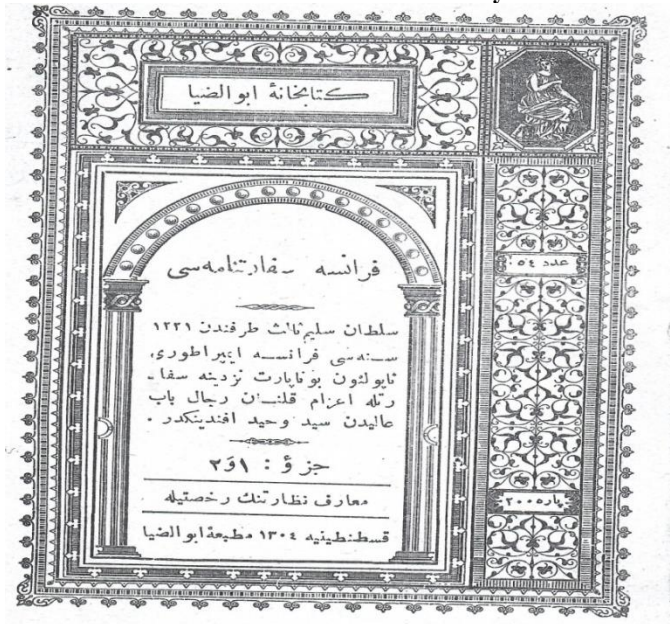 كتابخانهٔ ابوالضيا
عدد : ٥٤
فرانسه سفارتنامه‌سى
سلطان سليم ثالث طرفندن ١٢٢١
سنه‌سى فرانسه ايمپراطورى
ناپولئون بوناپارت نزدينه سفا‌ـ
رتله اعزام قلنــان رجال باب
عاليدن سيد وحيد افندينكدر .
جزؤ : ١و٢
معارف نظارتنك رخصتيله
پاره ٢٠٠
قسطنطينيه ١٣٠٤ مطبعهٔ ابوالضيا